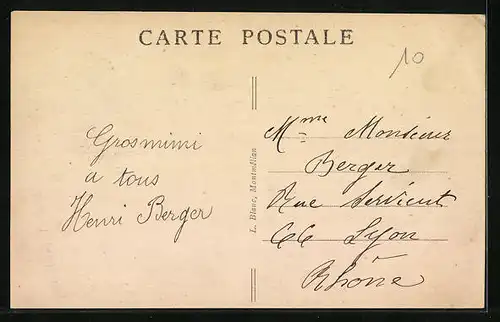 CARTE POSTALE
10
Grosmimi
a tous
Henri Berger
L. Blanc, Montmélian
Mme Monsieur
Berger
Rue Servient
66 Lyon
Rhône